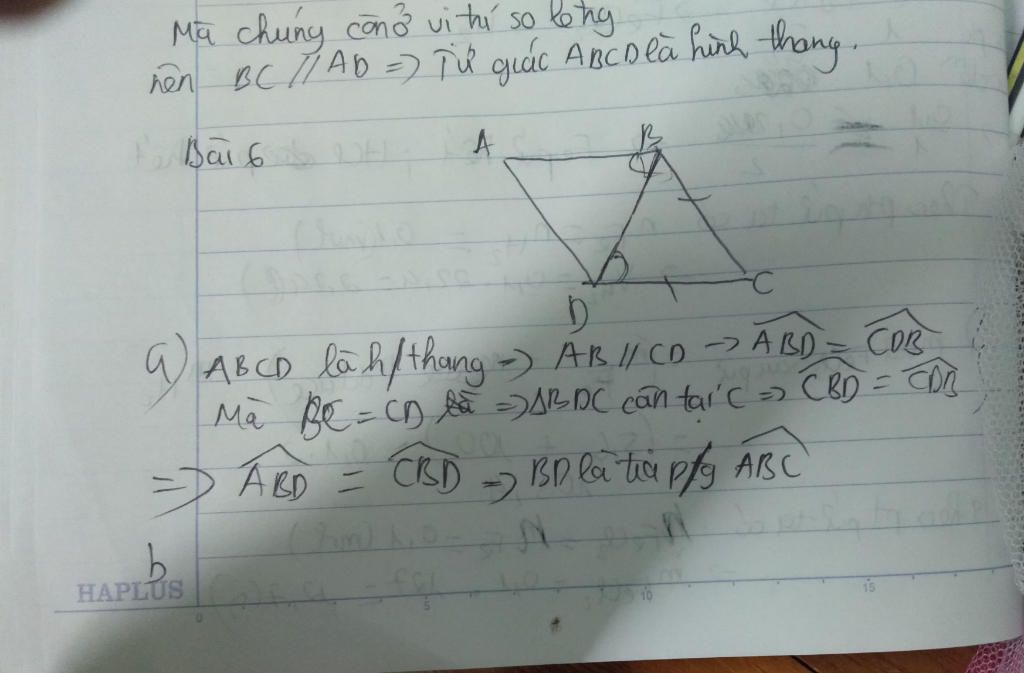 Mà chúng còn ở vị trí so le tng
nên BC // AD => Tứ giác ABCD là hình thang.
Bài 6
A B
D C
a) ABCD là h/thang => AB // CD -> ABD = CDB
Mà BC = CD => ΔBDC cân tại C => CBD = CDB
=> ABD = CBD => BD là tia p/g ABC
b
HAPLUS
0 5 10 15